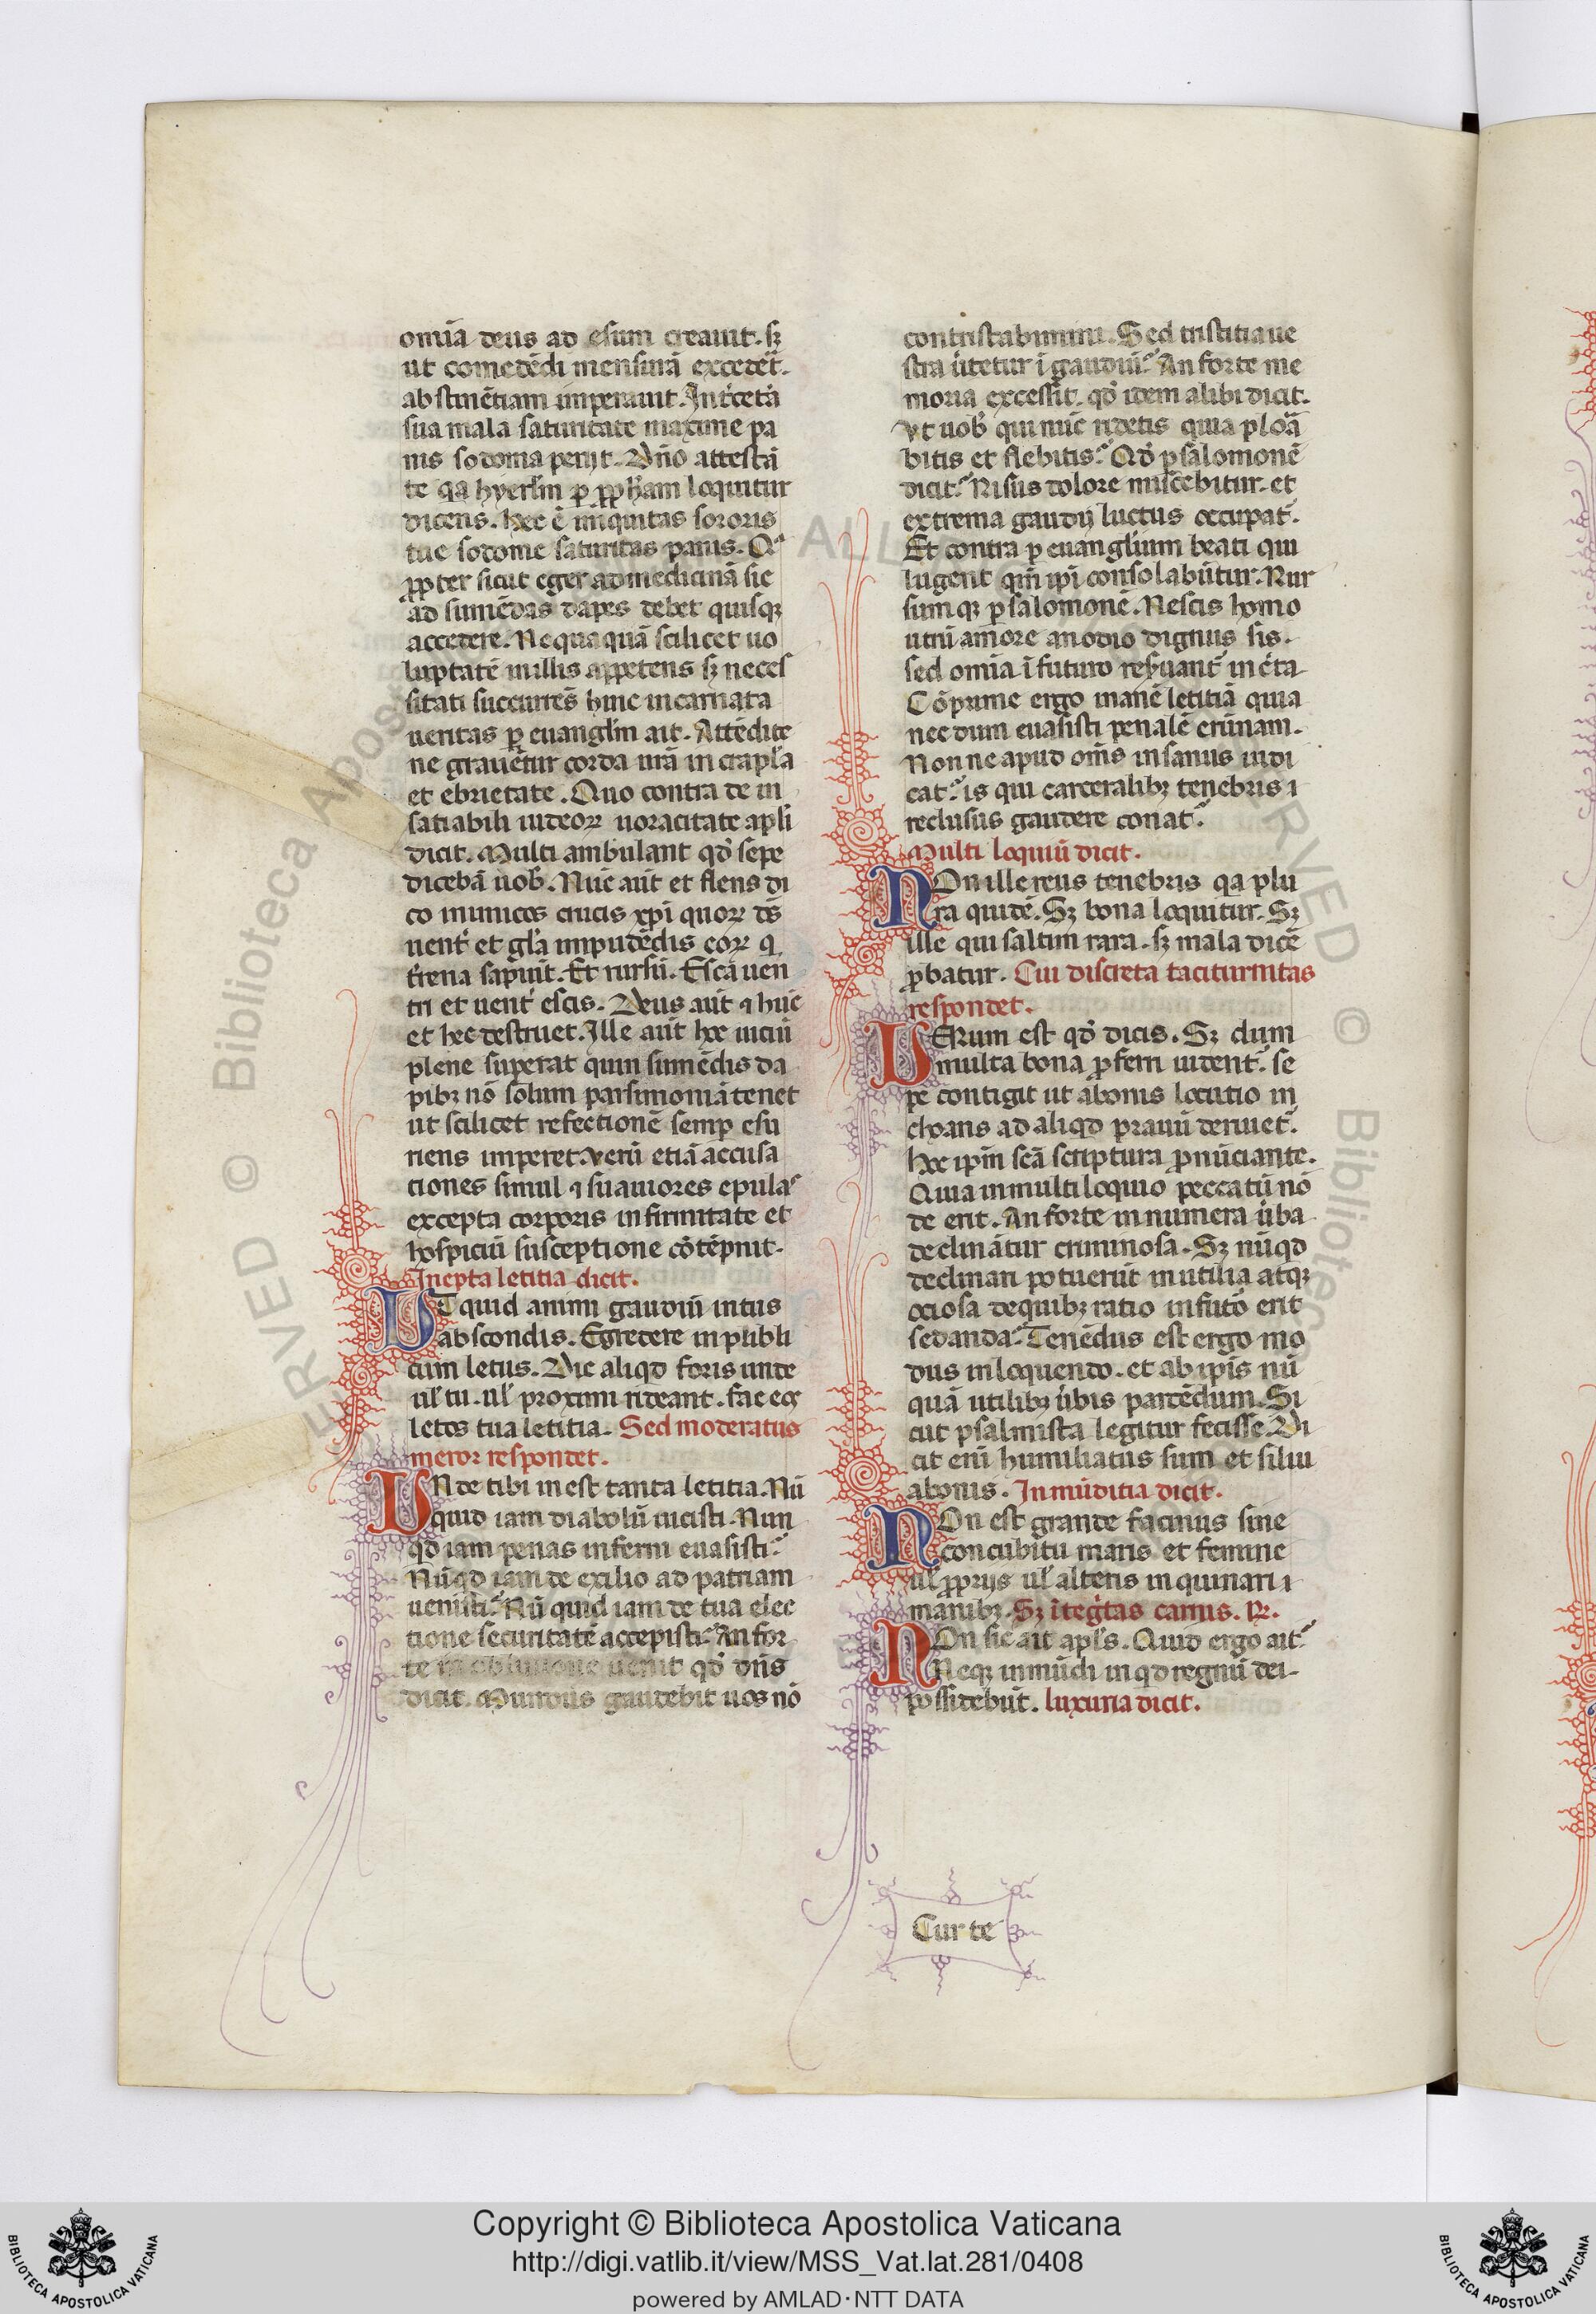 omīa deus ad esum creauit. sꝫ
ut comedēdi mensurā excedet᷑.
abstinētiam imperauit. Int᷑ cet᷑a
sua mala saturitate maxime pa
nis sodoma perijt. Dn̄o attestā
te qͣ hyerl̄m ꝑ ꝓph̄am loquitur
dicens. hec ē iniquitas sororis
tue sodome saturitas panis. Qͣ
ꝓpter sicut eger ad medicinā sic
ad sumēdas dapes debet quisqꝫ
accedere. Nequaquā scilicet uo
luptatē in illis appetens sꝫ neces
sitati succurrēs hinc incarnata
ueritas ꝑ euangl̄m ait. Attēdite
ne grauētur corda ur̄a in crapl̄a
et ebrietate. Quo contra de in
satiabili iudeoꝝ uoracitate apl̄s
dicit. Multi ambulant qd̓ sepe
dicebā uob̓. Nūc aūt et flens di
co inimicos crucis xp̄i quoꝝ dē
uent᷑ et gl̄a in pudēdis eoꝝ q̇
t᷑rena sapiūt. Et rursū. Esca uen
tri et uent᷑ escis. Deus aūt ⁊ hūc
et hec destruet. Ille aūt hoc uiciū
plene superat qui in sumēdis da
pibꝫ nō solum parsimoniā tenet
ut scilicet refectionē semꝑ esu
riens imperet. verū etiā accusa
ciones simul ⁊ suauiores epulas
excepta corporis infirmitate et
hospiciū susceptione cōtēpnit.
Inepta letitia dicit.
UT quid animi gaudiū intus
abscondis. Egredere in publi
cum letus. Dic aliqd foris unde
ul̄ tu. ul̄ proximi rideant. fac eos
letos tua letitia. Sed moderatus
meror respondet.
UNde tibi inest tanta letitia. Nū
quid iam diabolū uicisti. Nun
qd iam penas inferni euasisti.
Nūqd iam de exilio ad patriam
uenisti. Nū quid iam de tua elec
tione securitatē accepisti. An for
te in obliuione uenit qd̓ dn̄s
dicit. Mundus gaudebit uos nō
contristabimini. Sed tristitia ue
stra u᷑tetur ī gaudiū. An forte me
moria excessit. qd̓ idem alibi dicit.
Ve uob̓ qui nūc ridetis quia ploā
bitis et flebitis. Qd̓ ꝑ salomonē
dicit. Risus dolore miscebitur. et
extrema gaudij luctus occupat᷑.
Et contra ꝑ euangl̄ium beati qui
lugent qm̄ ip̄i consolabūtur. Rur
sumqꝫ ꝑ salomonē. Nescis homo
utrū amore an odio dignus sis.
sed omīa ī futuro res᷑uant᷑ incerta
Cōprime ergo inanē letitiā quia
nec dum euasisti penalē erūnam.
Nonne apud om̄s insanus iudi
cat᷑ is qui carceralibꝫ tenebris ı
reclusus gaudere conat᷑.
Multi loquiū dicit.
NOn ille reus tenebris qͣ plu
ra quidē. Sꝫ bona loquitur. Sꝫ
ille qui saltim rara. sꝫ mala dicē
ꝓbatur. Cui discreta taciturnitas
respondet.
UErum est qd̓ dicis. Sꝫ dum
multa bona ꝓferri uident᷑. se
pe contigit ut a bonis locutio in
choans ad aliqd prauū deriuet᷑.
hoc ip̄m sc̄a scriptura ꝓnūciante.
Quia in multi loquio peccatū nō
de erit. An forte in numera u᷑ba
declināntur criminosa. Sꝫ nūqd
declinari potuerūt inutilia atqꝫ
ociosa de quibꝫ ratio in futō erit
sedanda. Tenēdus est ergo mo
dus in loquendo. et ab ip̄is nū
quā utilibꝫ u᷑bis parcēdum. Si
cut psalmista legitur fecisse. Di
cit eni humiliatus sum et silui
a bonis. Inmūditia dicit.
NOn est grande facinus sine
concubitu maris et femine
ul̄ ꝓprijs ul̄ alteris inquinari ı
manibꝫ. Sꝫ īteg᷑tas carnis. ꝶ.
NOn sic ait apl̄s. Quid ergo ait.
Neqꝫ inmūdi in qd regnū dei.
possidebūt. luxuria dicit.
Cur te
Copyright © Biblioteca Apostolica Vaticana
http://digi.vatlib.it/view/MSS_Vat.lat.281/0408
powered by AMLAD·NTT DATA